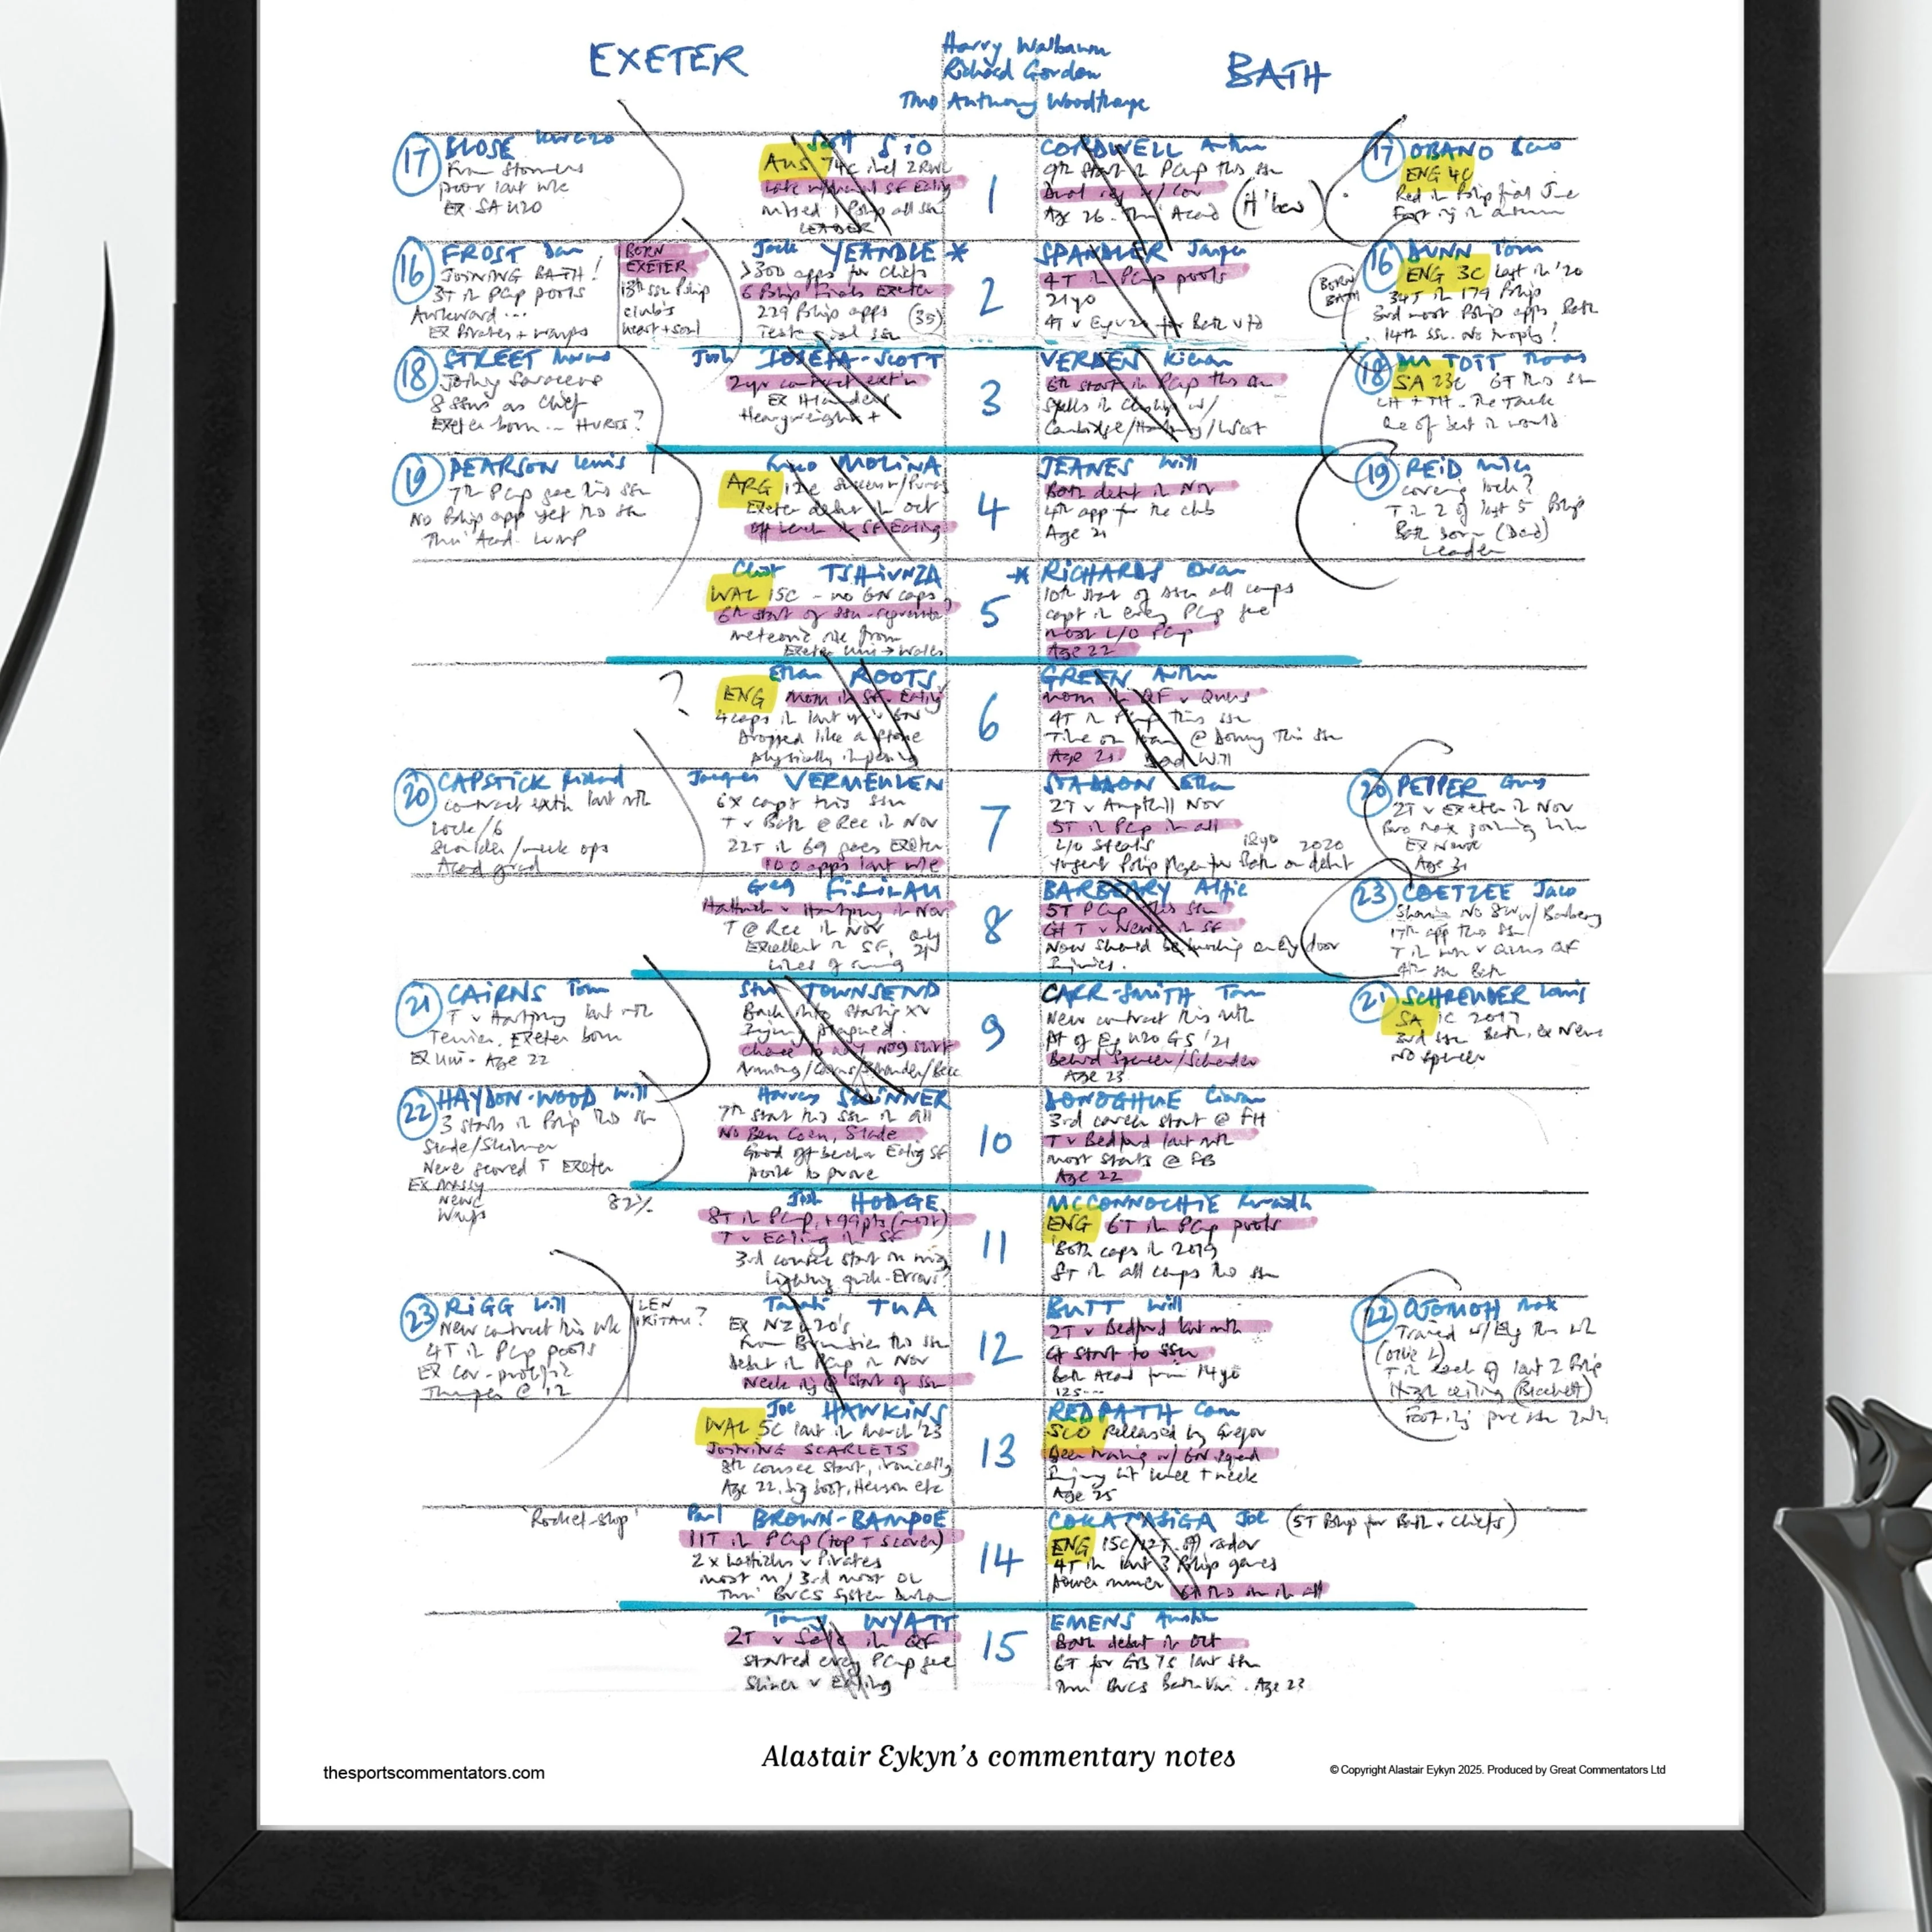 EXETER
Harry Walbaum
Richard Gordon
TMO Anthony Woodthorpe
BATH
17 BLOSE
From Stormers
poor last wk
EX SA U20
Scott SIO
AUS 74c incl 2 RWC
Late withdrawal SF Ealing
missed 1 Pship all ssn
LEADER
1
CORDWELL Arthur
9th start in PCup this ssn
Dual reg w/ Cov
Age 26. Thru' Acad
17 OBANO Beno
ENG 4c
Red in Pship final June
Foot inj in autumn
16 FROST Dan
JOINING BATH!
3T in PCup pools
Awkward...
EX Pirates + Wasps
BORN
EXETER
13th ssn Pship
club's
heart + soul
Jack YEANDLE *
>300 apps for Chiefs
6 Pship Finals Exeter
229 Pship apps (35)
Testimonial ssn
2
SPANDLER Jasper
4T in PCup pools
21yo
BORN
BATH
16 DUNN Tom
ENG 3C last in '20
34T in 179 Pship
3rd most Pship apps Bath
14th ssn. No trophs!
18 STREET Marcus
Joining Saracens
8 ssns as Chief
Exeter born -- HURTS?
Josh IOSEFA-SCOTT
2yr contract ext'n
EX Highlanders
Heavyweight +
3
VERDEN Kieran
6th start in PCup this ssn
Spells in Ch'ship w/
Cambridge/Hartpury/
18 DU TOIT Thomas
SA 23c 6T this ssn
LH + TH - The Tank
One of best in world
19 PEARSON Lewis
7th PCup gee this ssn
No Pship app yet this ssn
Thru' Acad.
MOLINA
ARG 12c
Exeter debut in Oct
off bench in SF Ealing
4
JEANES Will
Bath debut in Nov
4th app for the club
Age 21
19 REID Miles
covering lock?
T in 2 of last 5 Pship
Bath born (Dad)
Leader
Christ TSHIUNZA
WAL 15C - no 6N caps
6th start of ssn
meteoric rise from
Exeter Uni → Wales
5
* RICHARDS Ewan
10th start of ssn all comps
capt in every PCup gee
most L/O PCup
Age 22
?
Ethan ROOTS
ENG MOM in SF v Ealing
4 caps in last yr's 6N
Dropped like a stone
physically imposing
6
GREEN Arthur
MOM in QF v Quins
4T in PCup this ssn
Time on loan @ Donny this ssn
Age 21 Dad Will
20 CAPSTICK Richard
contract extn last mth
lock/6
shoulder/neck ops
Acad grad
Jacques VERMEULEN
6x capt this ssn
T v Bath @ Rec in Nov
22T in 69 games Exeter
100 apps last wk
7
STADDON Ethan
2T v Ampthill Nov
5T in PCup in all
L/O steals 18yo 2020
Youngest Pship player for Bath on debut
20 PEPPER Guy
2T v Exeter in Nov
Bro Max joining him
EX Newc
Greg FISILAU
Hattrick v Hartpury in Nov
T @ Rec in Nov
Excellent in SF, only 21
Lines of running
8
BARBEARY Alfie
5T PCup this ssn
GT T v Newc in SF
Now should be knocking on Eng door
Injuries.
23 COETZEE Jaco
Sharing No 8 w/ Barbeary
17th app this ssn
T in win v Quins QF
4th ssn Bath
21 CAIRNS Tom
T v Hartpury last mth
Terrier. Exeter born
EX Uni. Age 22
Stu TOWNSEND
Back into starting XV
Injury plagued.
chance to nail No9 shirt
9
CARR-SMITH Tom
New contract this mth
Pt of Eng U20 GS '21
Behind Spencer/Schreuder
Age 23
21 SCHREUDER Louis
SA 1C 2017
3rd ssn Bath, ex Newc
No Spencer
22 HAYDON-WOOD Will
3 starts in Pship this ssn
Slade/Skinner
Never scored T Exeter
EX Massy
Newc
Wasps
82%
Harvey SKINNER
7th start this ssn in all
No Ben Coen, Slade
Good off bench v Ealing SF
point to prove
10
DONOGHUE Ciaran
3rd career start @ FH
T v Bedford last mth
most starts @ FB
Age 22
Josh HODGE
8T in PCup, +99pts (most)
T v Ealing in SF
3rd consec start on wing
Lightning quick - Errors?
11
MCCONNOCHIE Ruaridh
ENG 6T in PCup pools
Both caps in 2019
8T in all comps this ssn
23 RIGG Will
New contract this wk
4T in PCup pools
EX Cov - prolific
Thumper @ 12
LEN
IKITAU?
Tamati TUA
EX NZ U20's
from Brumbies this ssn
debut in PCup in Nov
Neck inj @ start of ssn
12
BUTT Will
2T v Bedford last mth
GT start to ssn
Bath Acad from 14yo
125---
22 OJOMOH Max
Trained w/ Eng this wk
(Ollie L)
T in each of last 2 Pship
High ceiling (Blackett)
Foot inj pre ssn
Joe HAWKINS
WAL 5C last in March '23
JOINING SCARLETS
8th consec start, ironically
Age 22, big boot, Henson etc
13
REDPATH Cam
SCO Released by Gregor
Been training w/ 6N squad
Injury hit knee + neck
Age 25
'Rocket-ship'
Paul BROWN-BAMPOE
11T in PCup (top T scorer)
2 x hattricks v Pirates
most m / 3rd most OL
Thru' BUCS system Durham
14
COKANASIGA Joe (5T Pship for Bath v Chiefs)
ENG 15C/12T. off radar
4T in last 3 Pship games
power runner 6T this ssn in all
Tommy WYATT
2T v Sale in QF
started every PCup gee
Shiner v Ealing
15
EMENS Austin
Bath debut in Oct
6T for GB 7s last ssn
Thru BUCS Bath Uni. Age 23
Alastair Eykyn's commentary notes
thesportscommentators.com
© Copyright Alastair Eykyn 2025. Produced by Great Commentators Ltd